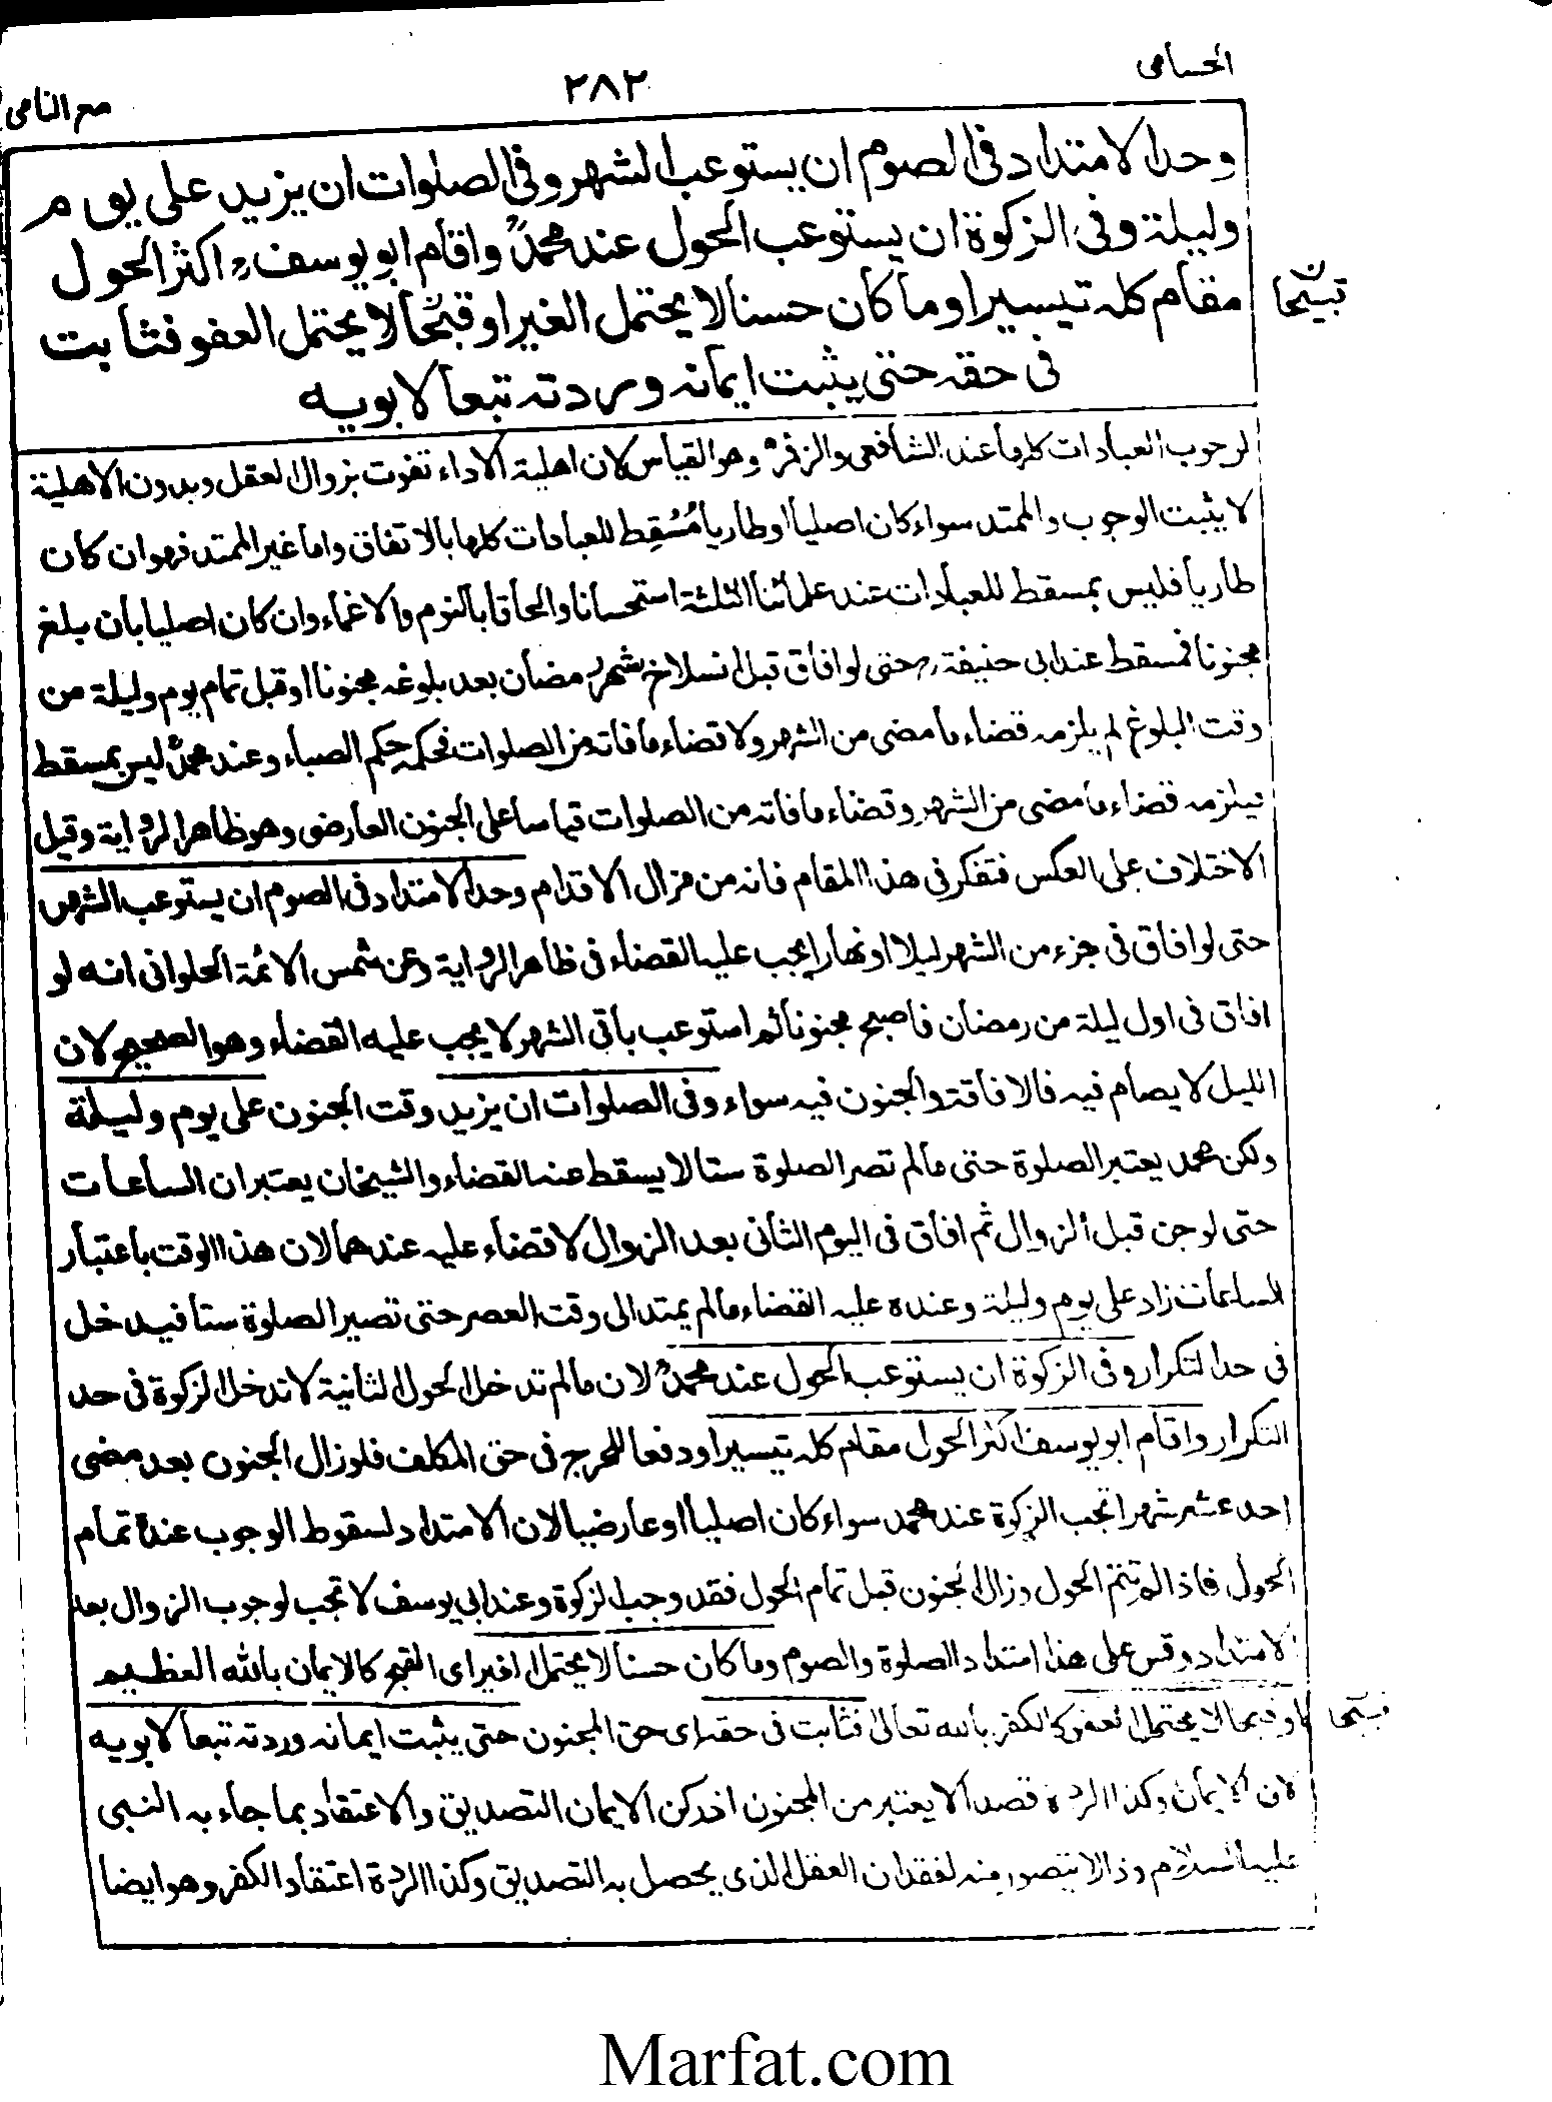 الحسامی
۲۸۲
مع النامی
وحد الامتداد فی الصوم ان یستوعب الشهر وفی الصلوات ان یزید علی یوم
ولیلة وفی الزکوة ان یستوعب الحول عند محمدؒ واقام ابو یوسفؒ اکثر الحول
مقام کله تیسیرا وما کان حسنا لا یحتمل الغیر او قبیحا لا یحتمل العفو فثابت
قبیحا
فی حقه حتی یثبت ایمانه وردته تبعا لابویه
لوجوب العبادات کلها عند الشافعی والزفرؒ وهو القیاس لان اهلیة الاداء تفوت بزوال العقل وبدون الاهلیة
لا یثبت الوجوب والممتد سواء کان اصلیا او طاریا مُسْقِط للعبادات کلها بالاتفاق واما غیر الممتد فهو ان کان
طاریا فلیس بمسقط للعبادات عند علمائنا الثلثة استحسانا والحاقا بالنوم والاغماء وان کان اصلیا بان بلغ
مجنونا فمسقط عند ابی حنیفةؒ حتی لو افاق قبل انسلاخ شهر رمضان بعد بلوغه مجنونا او قبل تمام یوم ولیلة من
وقت البلوغ لم یلزمه قضاء ما مضی من الشهر ولا قضاء ما فاته من الصلوات فحکمه حکم الصباء وعند محمدؒ لیس بمسقط
فیلزمه قضاء ما مضی من الشهر وقضاء ما فاته من الصلوات قیاسا علی الجنون العارضی وهو ظاهر الروایة وقیل
الاختلاف علی العکس فتفکر فی هذا المقام فانه من مزال الاقدام وحد الامتداد فی الصوم ان یستوعب الشهر
حتی لو افاق فی جزء من الشهر لیلا او نهارا یجب علیه القضاء فی ظاهر الروایة وعن شمس الائمة الحلوانی انه لو
افاق فی اول لیلة من رمضان فاصبح مجنونا ثم استوعب باقی الشهر لا یجب علیه القضاء وهو الصحیح لان
اللیل لا یصام فیه فالافاقة والجنون فیه سواء وفی الصلوات ان یزید وقت الجنون علی یوم ولیلة
ولکن محمد یعتبر الصلوة حتی ما لم تصر الصلوة ستا لا یسقط عنه القضاء والشیخان یعتبران الساعات
حتی لو جن قبل الزوال ثم افاق فی الیوم الثانی بعد الزوال لا قضاء علیه عندهما لان هذا الوقت باعتبار
الساعات زاد علی یوم ولیلة وعنده علیه القضاء ما لم یمتد الی وقت العصر حتی تصیر الصلوة ستا فیدخل
فی حد التکرار وفی الزکوة ان یستوعب الحول عند محمدؒ لان ما لم تدخل الحول الثانیة لا تدخل الزکوة فی حد
التکرار واقام ابو یوسف اکثر الحول مقام کله تیسیرا ودفعا للحرج فی حق المکلف فلو زال الجنون بعد مضی
احد عشر شهرا تجب الزکوة عند محمد سواء کان اصلیا او عارضیا لان الامتداد لسقوط الوجوب عنده تمام
الحول فاذا لم تتم الحول وزال الجنون قبل تمام الحول فقد وجب الزکوة وعند ابی یوسف لا تجب لوجوب الزوال بعد
الامتداد وقس علی هذا امتداد الصلوة والصوم وما کان حسنا لا یحتمل الغیر ای القبح کالایمان بالله العظیم
او قبیحا لا یحتمل العفو کالکفر بالله تعالی فثابت فی حقه ای حق المجنون حتی یثبت ایمانه وردته تبعا لابویه
قبیحا
لان الایمان وکذا الردة قصدا لا یعتبر من المجنون اذ رکن الایمان التصدیق والاعتقاد بما جاء به النبی
علیه السلام وذا لا یتصور منه لفقدان العقل الذی یحصل به التصدیق وکذا الردة اعتقاد الکفر وهو ایضا
Marfat.com